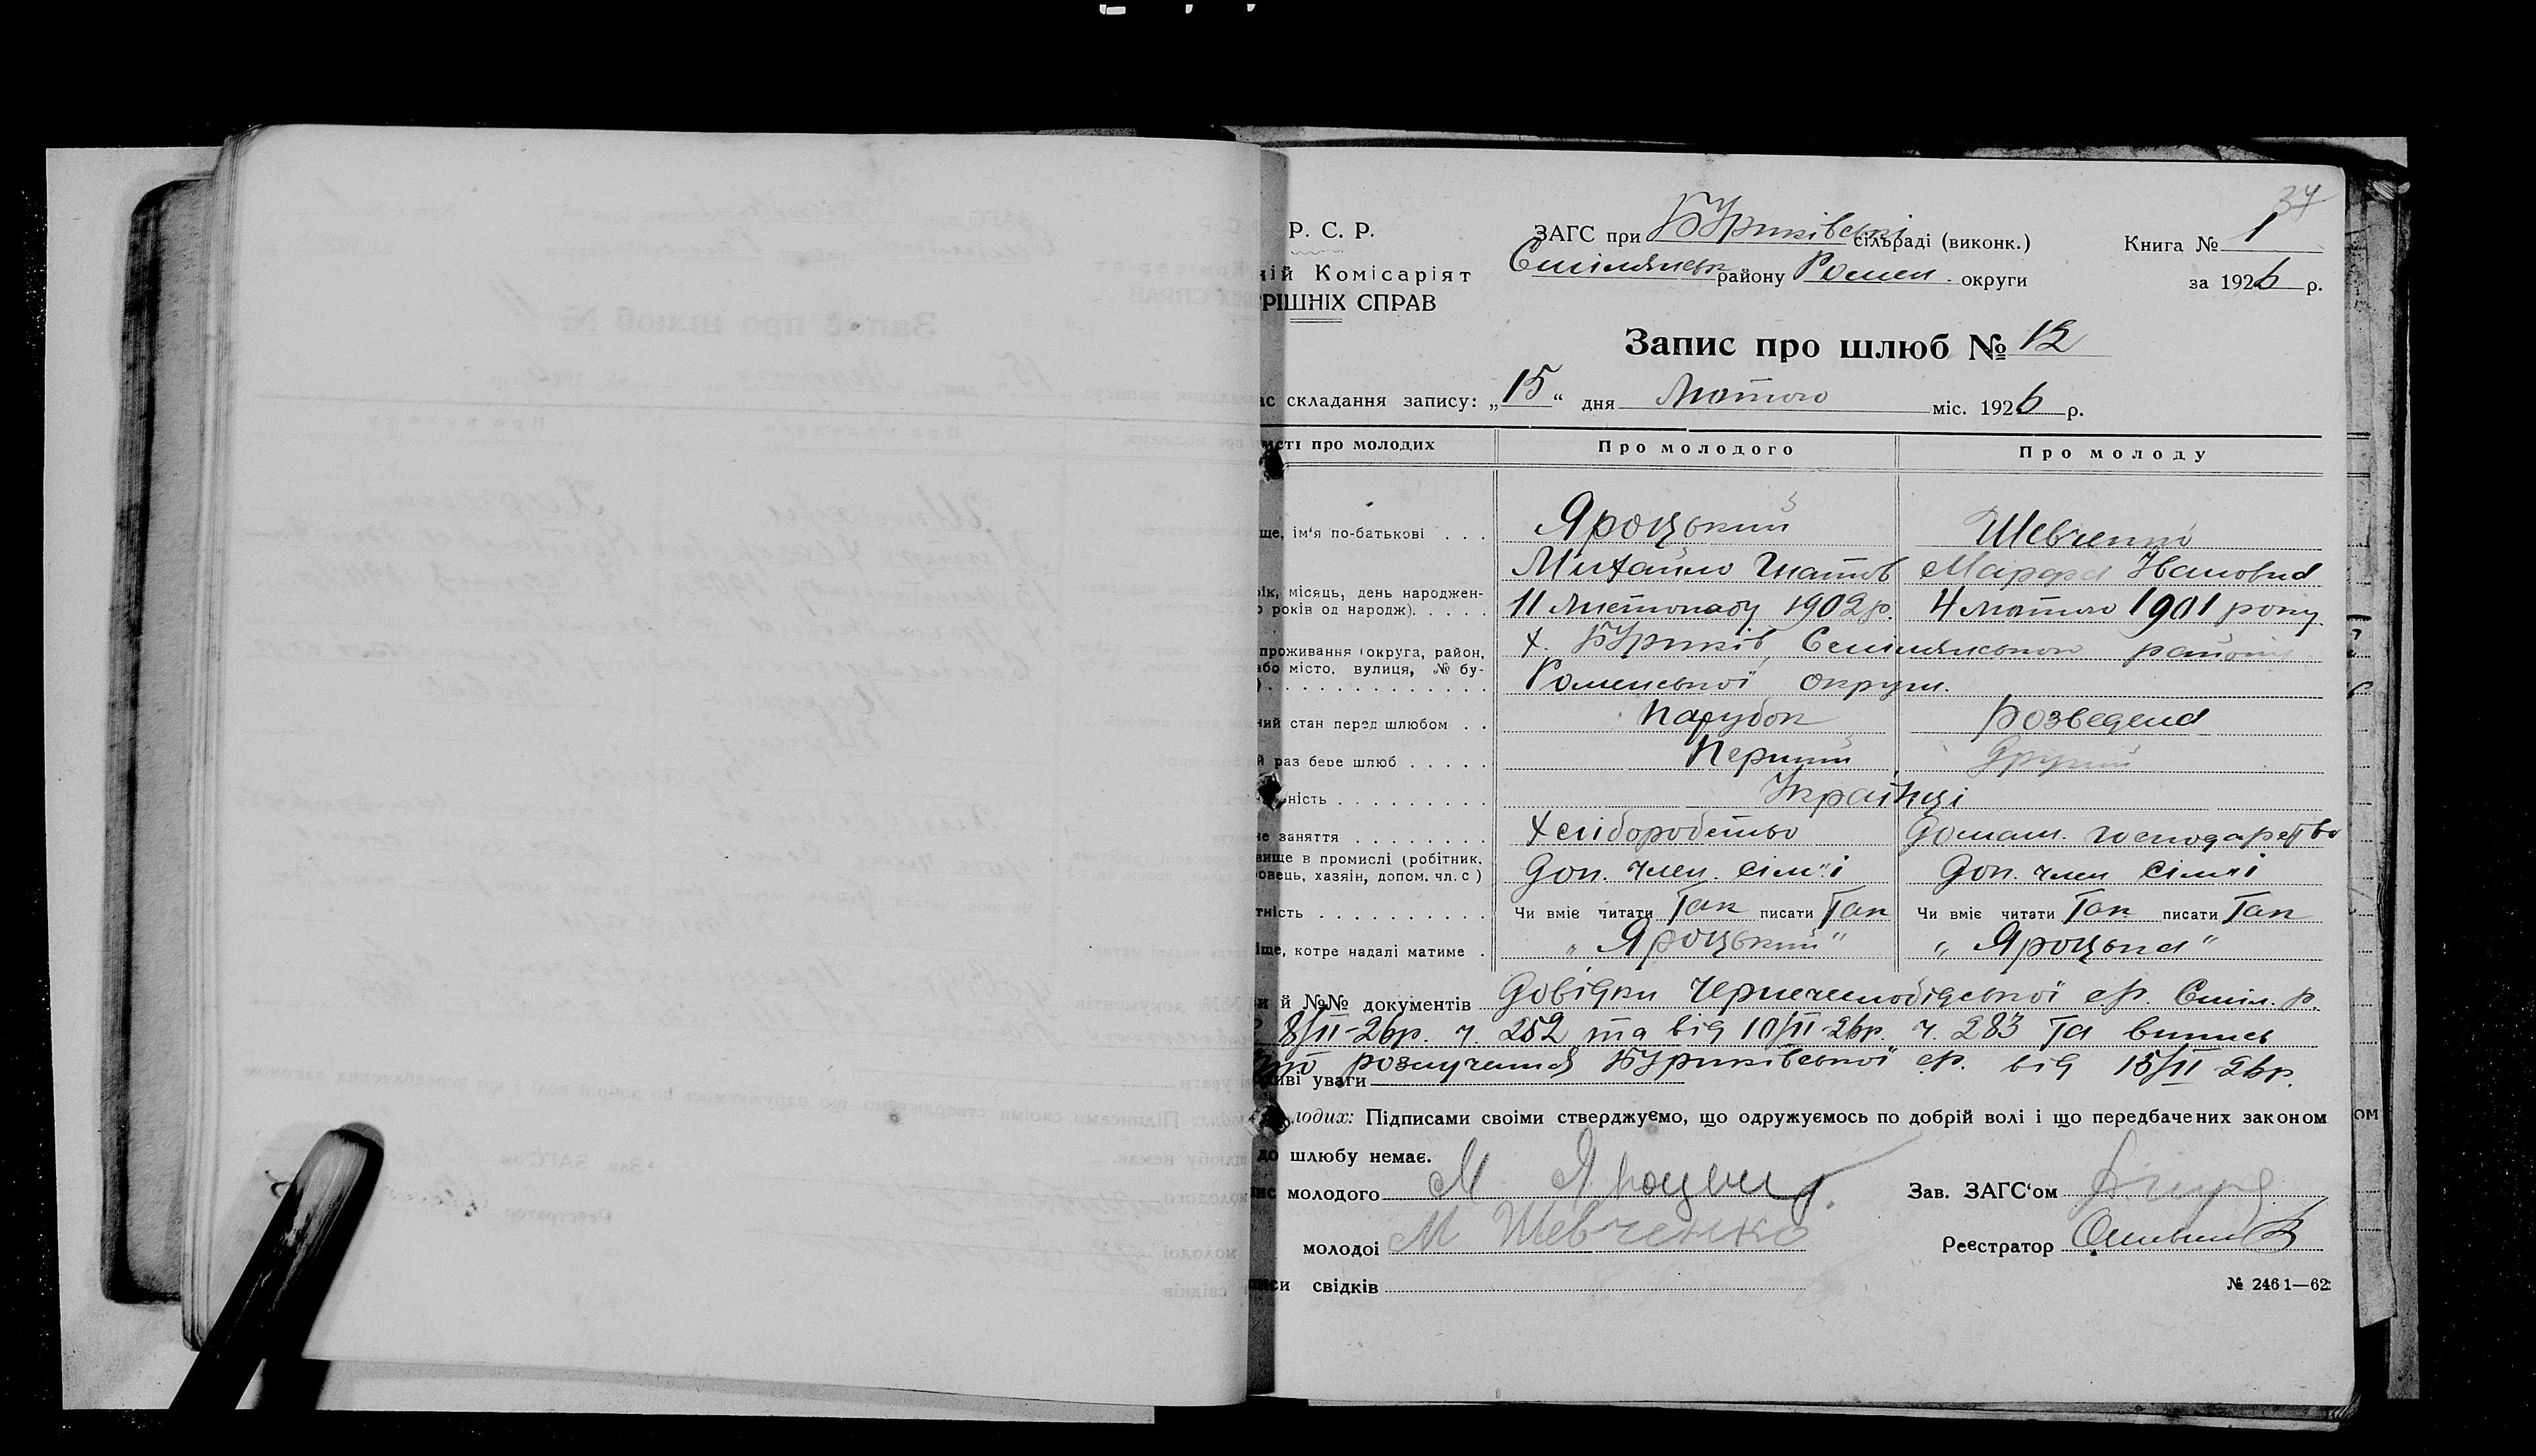 34
Р. С. Р.
ЗАГС при Буриківські сільраді (виконк.)
Книга № 1
ній Комісаріят
Смілянськ району Ромен. округи
за 1926 р.
РІШНІХ СПРАВ
Запис про шлюб № 12
ас складання запису: „15“ дня Лютого міс. 1926 р.
мості про молодих
Про молодого
Про молоду
ще, ім'я по-батькові . . .
Яроцький
Шевченко
Михайло Гнатов
Марфа Івановна
рік, місяць, день народжен-
о років од народж). . . . .
11 листопаду 1902 р.
4 лютого 1901 року
проживання (округа, район,
або місто, вулиця, № бу-
) . . . . . . . . . . . . .
х. Буриків, Смілянського району
Роменської округи.
ний стан перед шлюбом . .
парубок
розведена
й раз бере шлюб . . . . .
перший
другий
ність . . . . . . . . . .
Українці
не заняття . . . . . . . .
хліборобство
домаш. господарство
вище в промислі (робітник,
овець, хазяін, допом. чл. с )
Доп. член. сім"ї
Доп. член сімъі
тність . . . . . . . . . . .
Чи вміє читати Так писати Так
Чи вміє читати Так писати Так
іще, котре надалі матиме .
„ Яроцький "
„ Яроцька "
и й №№ документів Довідки Чернечеслобідської с.р. Сміл. р.
8/II-26р. ч. 252 та від 10/II-26р. ч. 283 та випись
про розлучення Буриківської с.р. від 15/II 26р.
иві уваги
лодих: Підписами своіми стверджуємо, що одружуємось по добрій волі і що передбачених законом
до шлюбу немає.
пис молодого М Яроцький
Зав. ЗАГС'ом
молодоі М Шевченко
Реєстратор
писи свідків
№ 2461—62